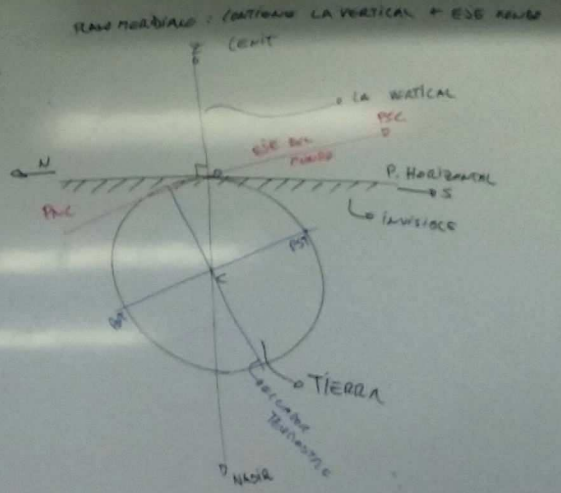 PLANO MERIDIANO: CONTIENE LA VERTICAL + EJE MUNDO
Z
CENIT
LA VERTICAL
PSC
EJE DEL
MUNDO
N
P. HORIZONTAL
S
PNC
INVISIBLE
PST
C
PNT
TIERRA
ECUADOR
TERRESTRE
NADIR